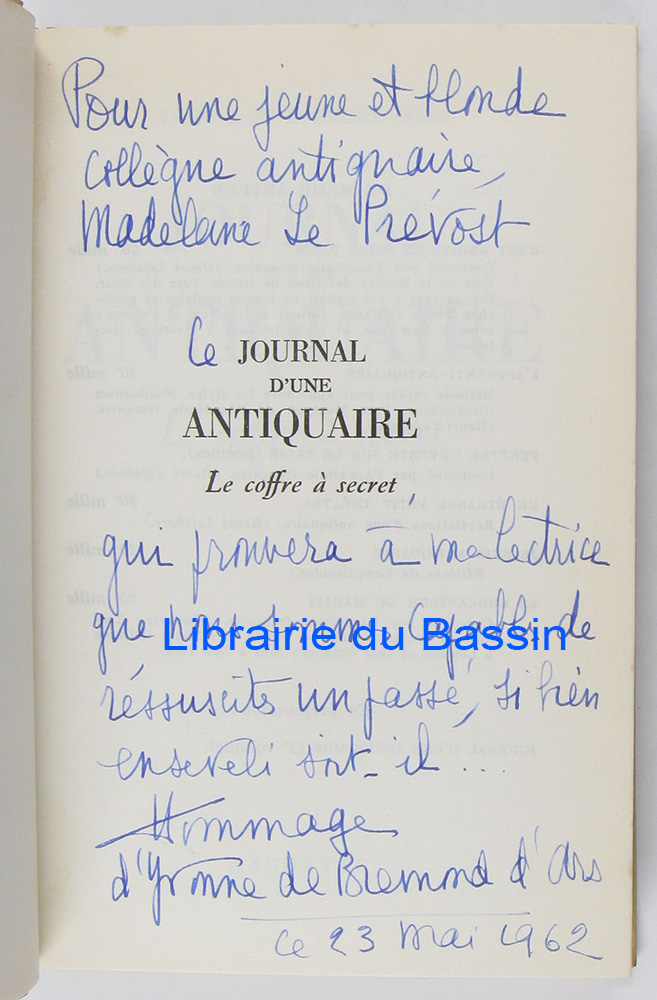 Pour une jeune et blonde
collègue antiquaire,
Madeleine Le Prévost
Ce JOURNAL
D'UNE
ANTIQUAIRE
Le coffre à secret,
qui prouvera à ma Lectrice
que nous sommes capables de
réssuscités un passé, si bien
enseveli soit-il...
Hommage
d'Yvonne de Bremond d'Ars
ce 23 Mai 1962
Librairie du Bassin